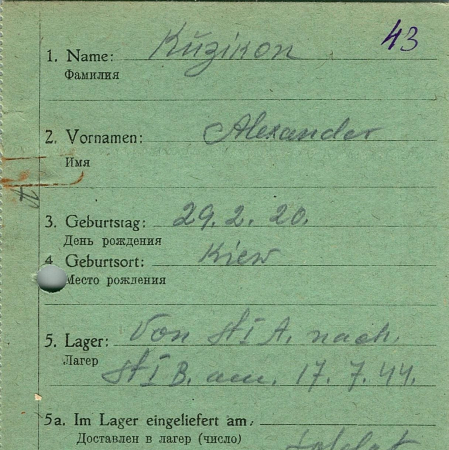 43
1. Name: Kuzikon
Фамилия
2. Vornamen: Alexander
Имя
3. Geburtstag: 29.2.20.
День рождения
4. Geburtsort: Kiew
Место рождения
5. Lager: Von St I A. nach.
Лагер
St I B. am. 17.7.44.
5a. Im Lager eingeliefert am:
Доставлен в лагер (число)